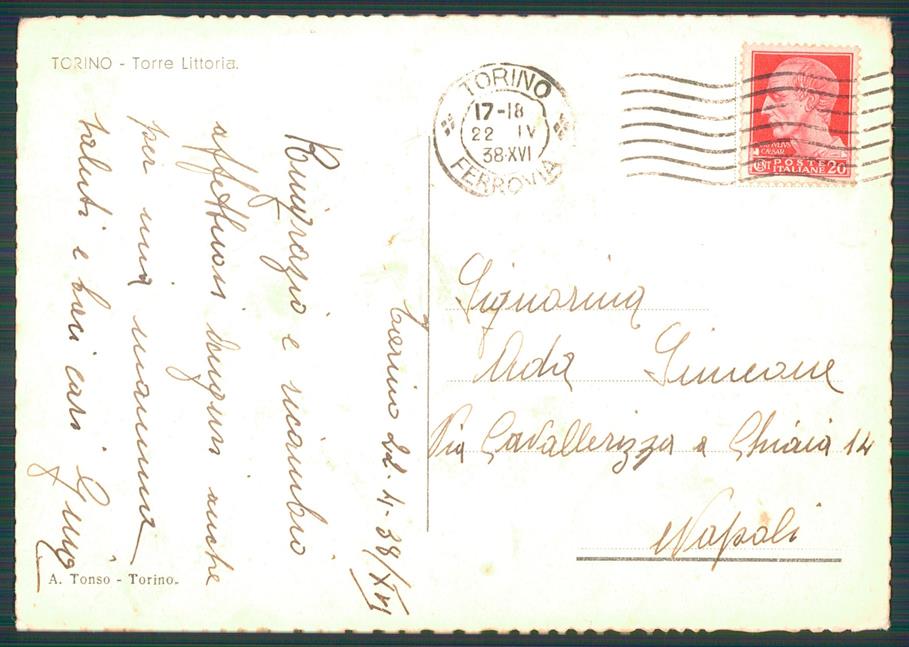 TORINO - Torre Littoria.
TORINO
17-18
22 IV
38·XVI
FERROVIA
IVLIVS
CAESAR
CENT POSTE 20
ITALIANE
Torino 22-4-38/XVI
Ringrazio e ricambio
affettuosi auguri anche
per mia mamma
saluti e baci cari
Signorina
Ada Simeone
Via Cavallerizza a Chiaia 14
Napoli
A. Tonso - Torino.